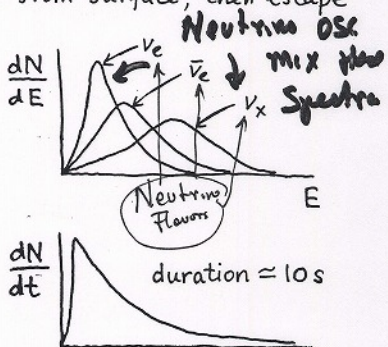 from surface, then escape
Neutrino Osc
mix flav
Spectra
dN
dE
νe
ν̄e
νx
Neutrino
Flavors
E
dN
dt
duration ≃ 10 s